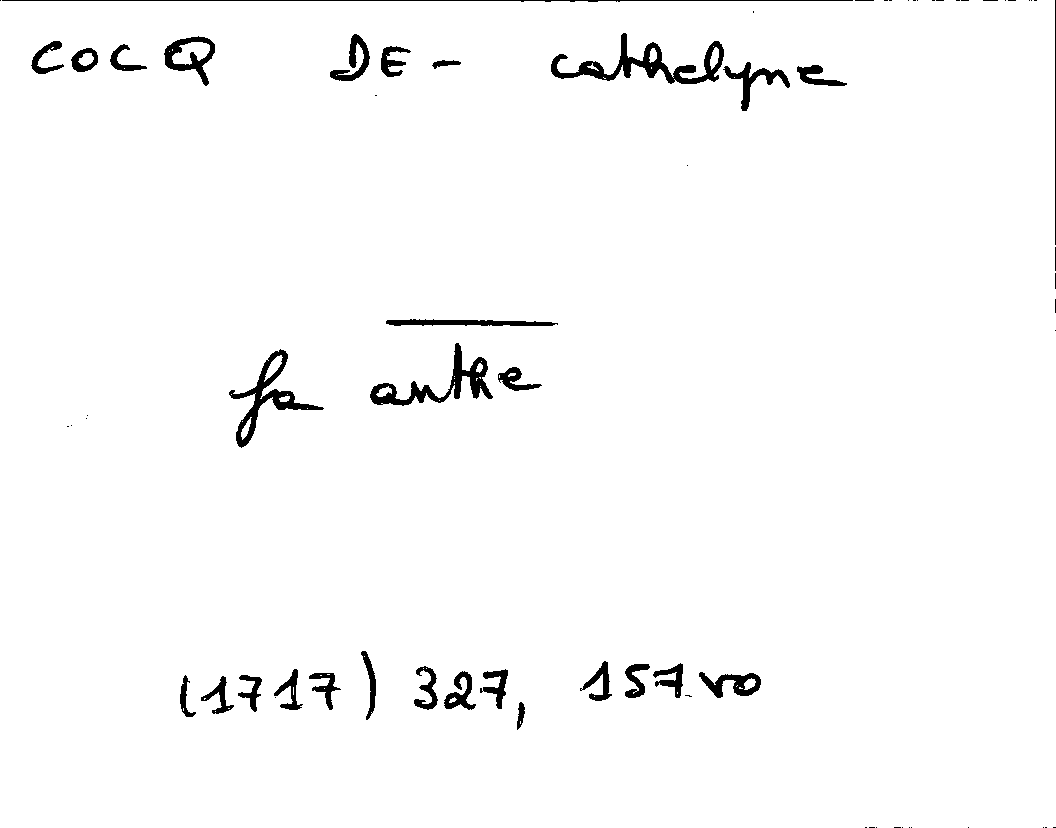 COCQ DE - cathelyne
fa anthe
(1717) 327, 157 vo